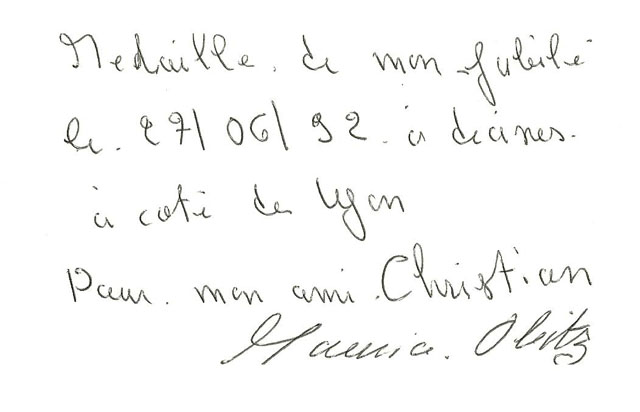 Medaille de mon jubilé
le 27/06/92 à decines.
à coté de Lyon
Pour mon ami Christian
Maurice